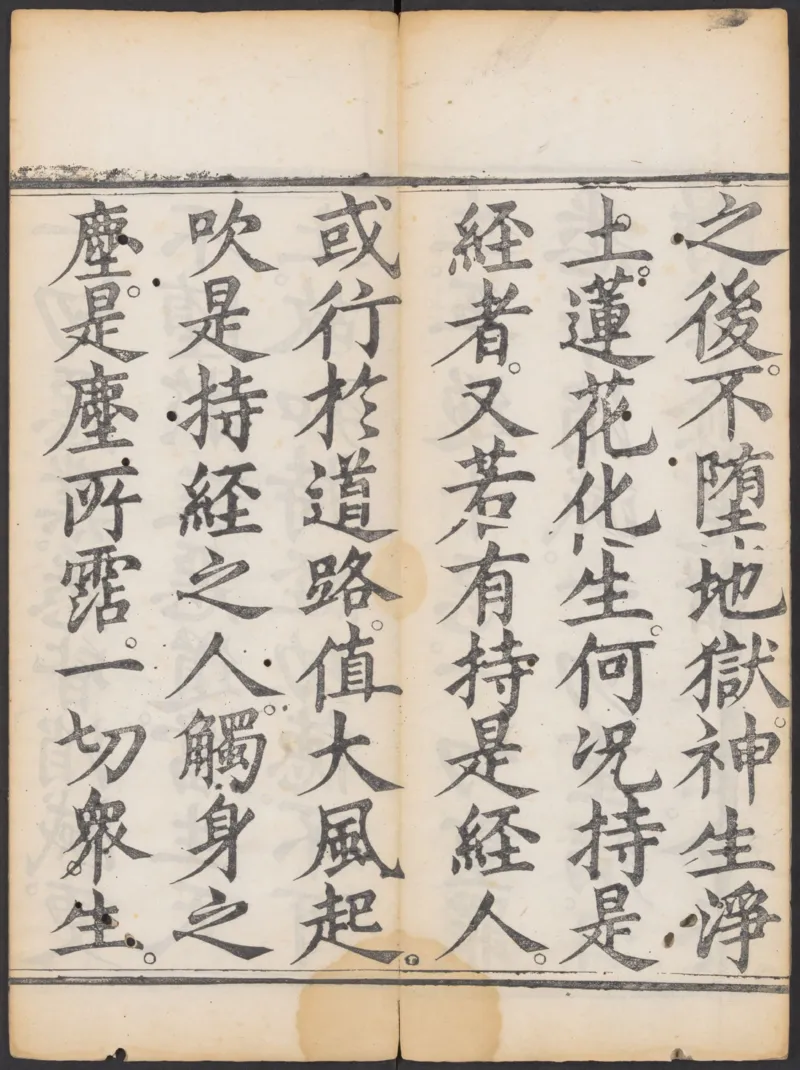 之後。不堕地獄。神生淨
土。蓮花化生。何况持是
経者。又若有持是経人。
或行於道路。値大風起。
吹是持経之人。觸身之
塵。是塵所霑。一切衆生。